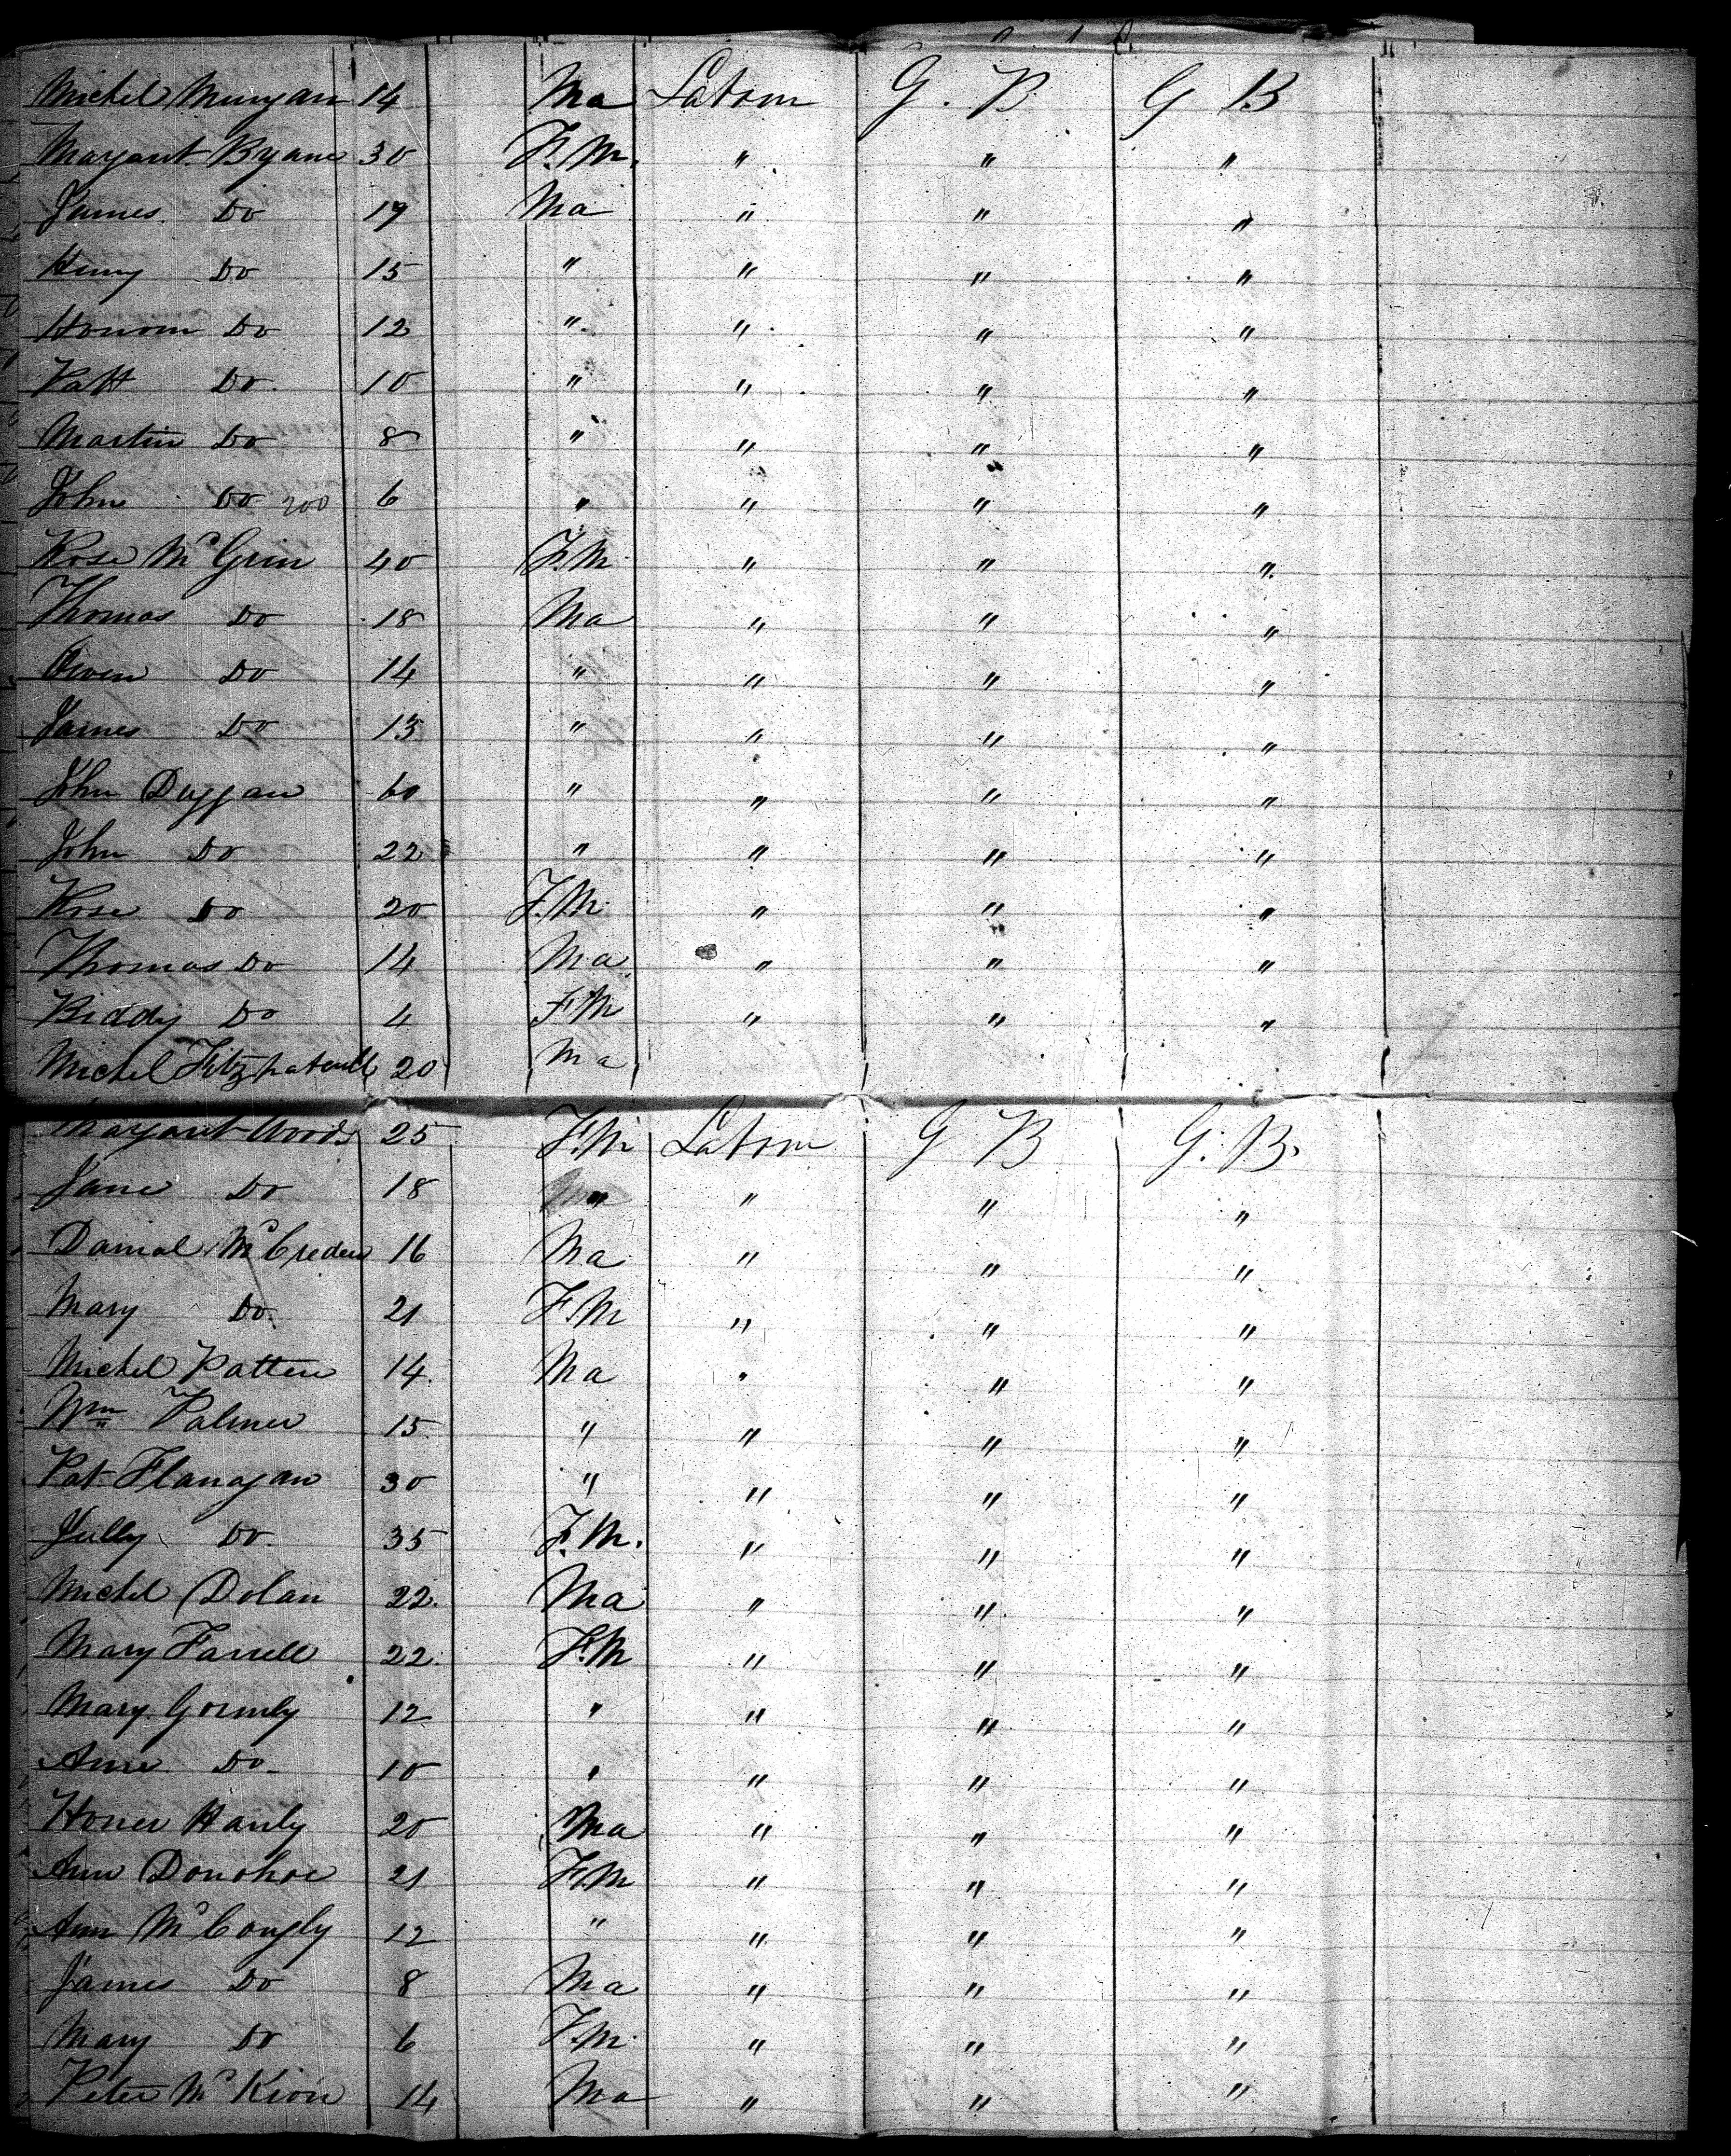 Michel Munyan 14 Ma Labour G. B G B
Margaret Byane 30 F.M. " " "
James Do 19 Ma " " "
Henry Do 15 " " " "
Honour Do 12 " " " "
Patt Do 10 " " " "
Martin Do 8 " " " "
John Do 200 6 " " " "
Rose McGrin 40 F.M " " "
Thomas Do 18 Ma " " "
Owen Do 14 " " " "
James Do 13 " " " "
John Duggan 60 " " " "
John Do 22 " " " "
Rose Do 20 F.M " " "
Thomas Do 14 Ma " " "
Biddy Do 4 F.M " " "
Michel 20 Ma
Margaret Woods 25 F.M Labour G B G. B.
Jane Do 18 " " " "
Danial 16 Ma " " "
Mary Do 21 F.M " " "
Michel Patten 14 Ma " " "
Wm Palmer 15 " " " "
Pat Flanagan 30 " " " "
Jully Do 35 F.M. " " "
Michel Dolan 22 Ma " " "
Mary Farrell 22 F.M " " "
Mary Gormly 12 " " " "
Anne Do 10 " " " "
Honer Hanly 20 Ma " " "
Ann Donohoe 21 F.M " " "
Ann McCongly 12 " " " "
James Do 8 Ma " " "
Mary Do 6 F.M " " "
Peter McKion 14 Ma " " "